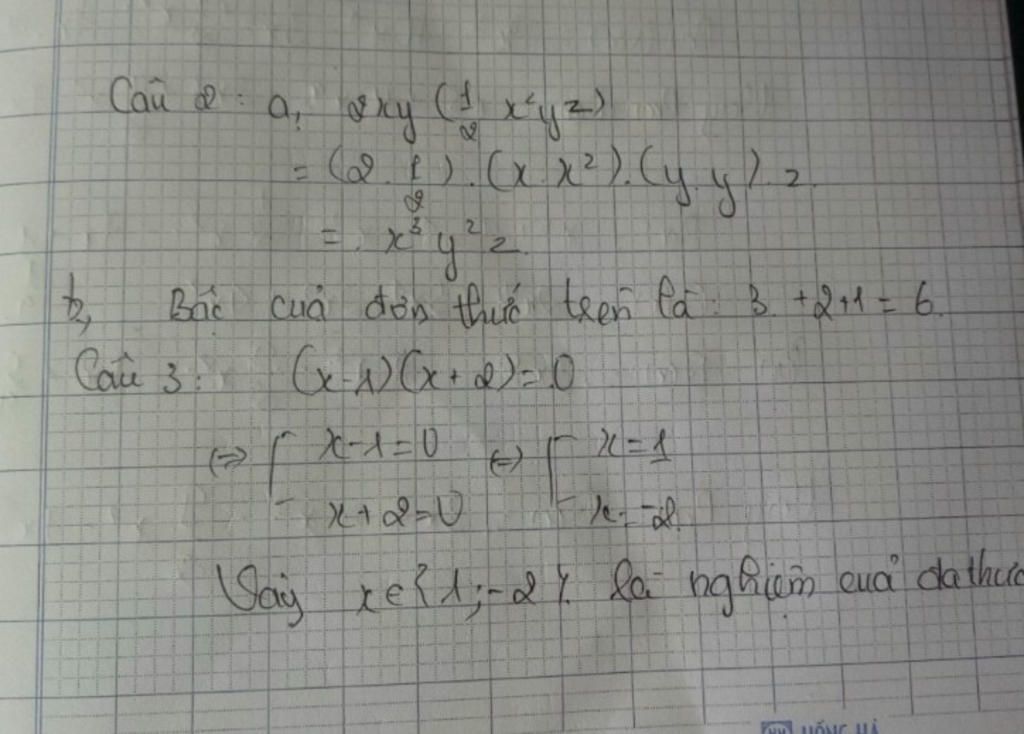 Câu 2: a, 2xy (1/2 x²yz)
= (2 . 1/2) . (x . x²) . (y . y) . z
= x³y²z.
b, Bậc của đơn thức trên là: 3 + 2 + 1 = 6.
Câu 3: (x - 1)(x + 2) = 0
⇔ [ x - 1 = 0 ⇔ [ x = 1
x + 2 = 0 x = -2.
Vậy x ∈ {1; -2} là nghiệm của đa thức
HỒNG HÀ